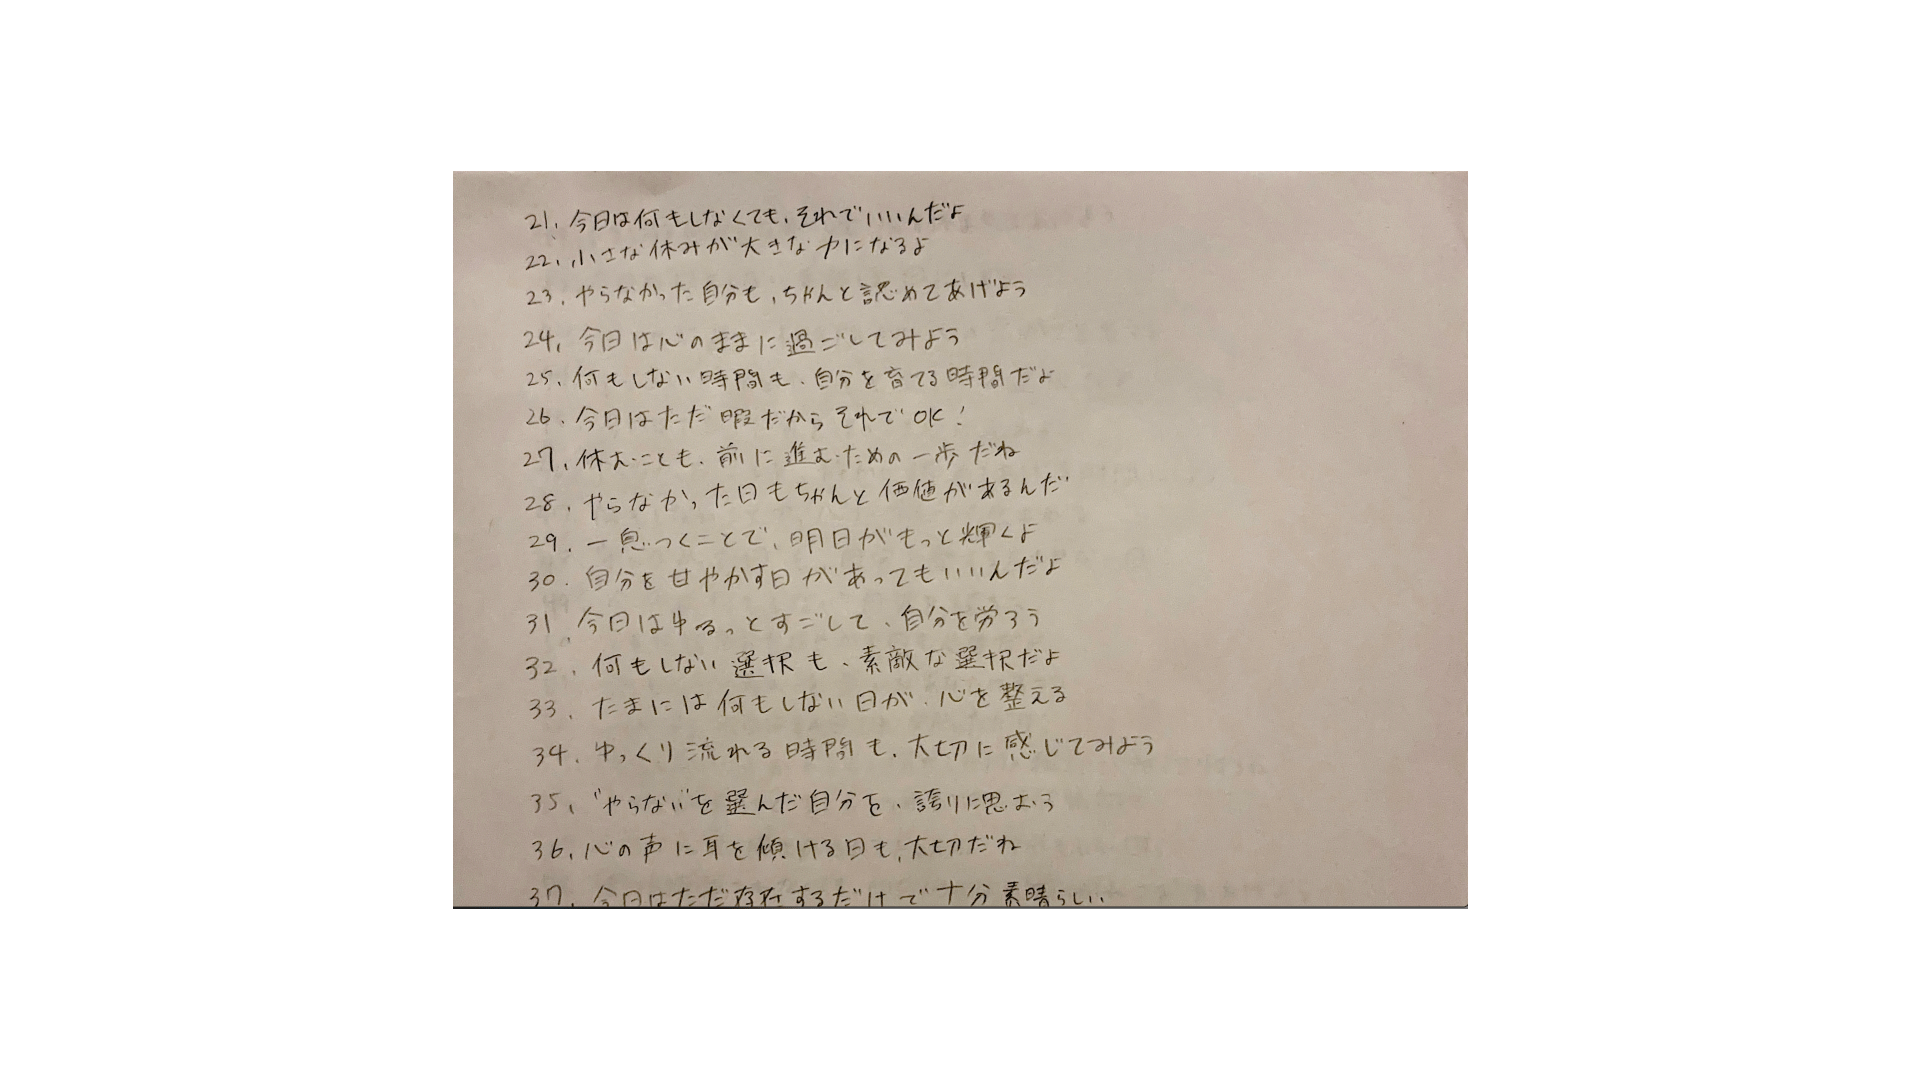 21. 今日は何もしなくても、それでいいんだよ
22. 小さな休みが大きな力になるよ
23. やらなかった自分も、ちゃんと認めてあげよう
24. 今日は心のままに過ごしてみよう
25. 何もしない時間も、自分を育てる時間だよ
26. 今日はただ暇だからそれでOK!
27. 休むことも、前に進むための一歩だね
28. やらなかった日もちゃんと価値があるんだ
29. 一息つくことで、明日がもっと輝くよ
30. 自分を甘やかす日があってもいいんだよ
31. 今日はゆるっとすごして、自分を労ろう
32. 何もしない選択も、素敵な選択だよ
33. たまには何もしない日が、心を整える
34. ゆっくり流れる時間も、大切に感じてみよう
35. "やらない"を選んだ自分を、誇りに思おう
36. 心の声に耳を傾ける日も、大切だね
37. 今日はただ存在するだけで十分素晴らしい